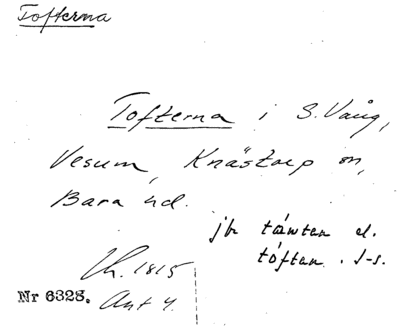 Tofterna
Tofterna i S. Vång,
Vesum, Knästorp sn,
Bara hd.
jfr táwtan el.
tóftan. s-s.
Lh. 1815
Nr 6328. Ant 4.